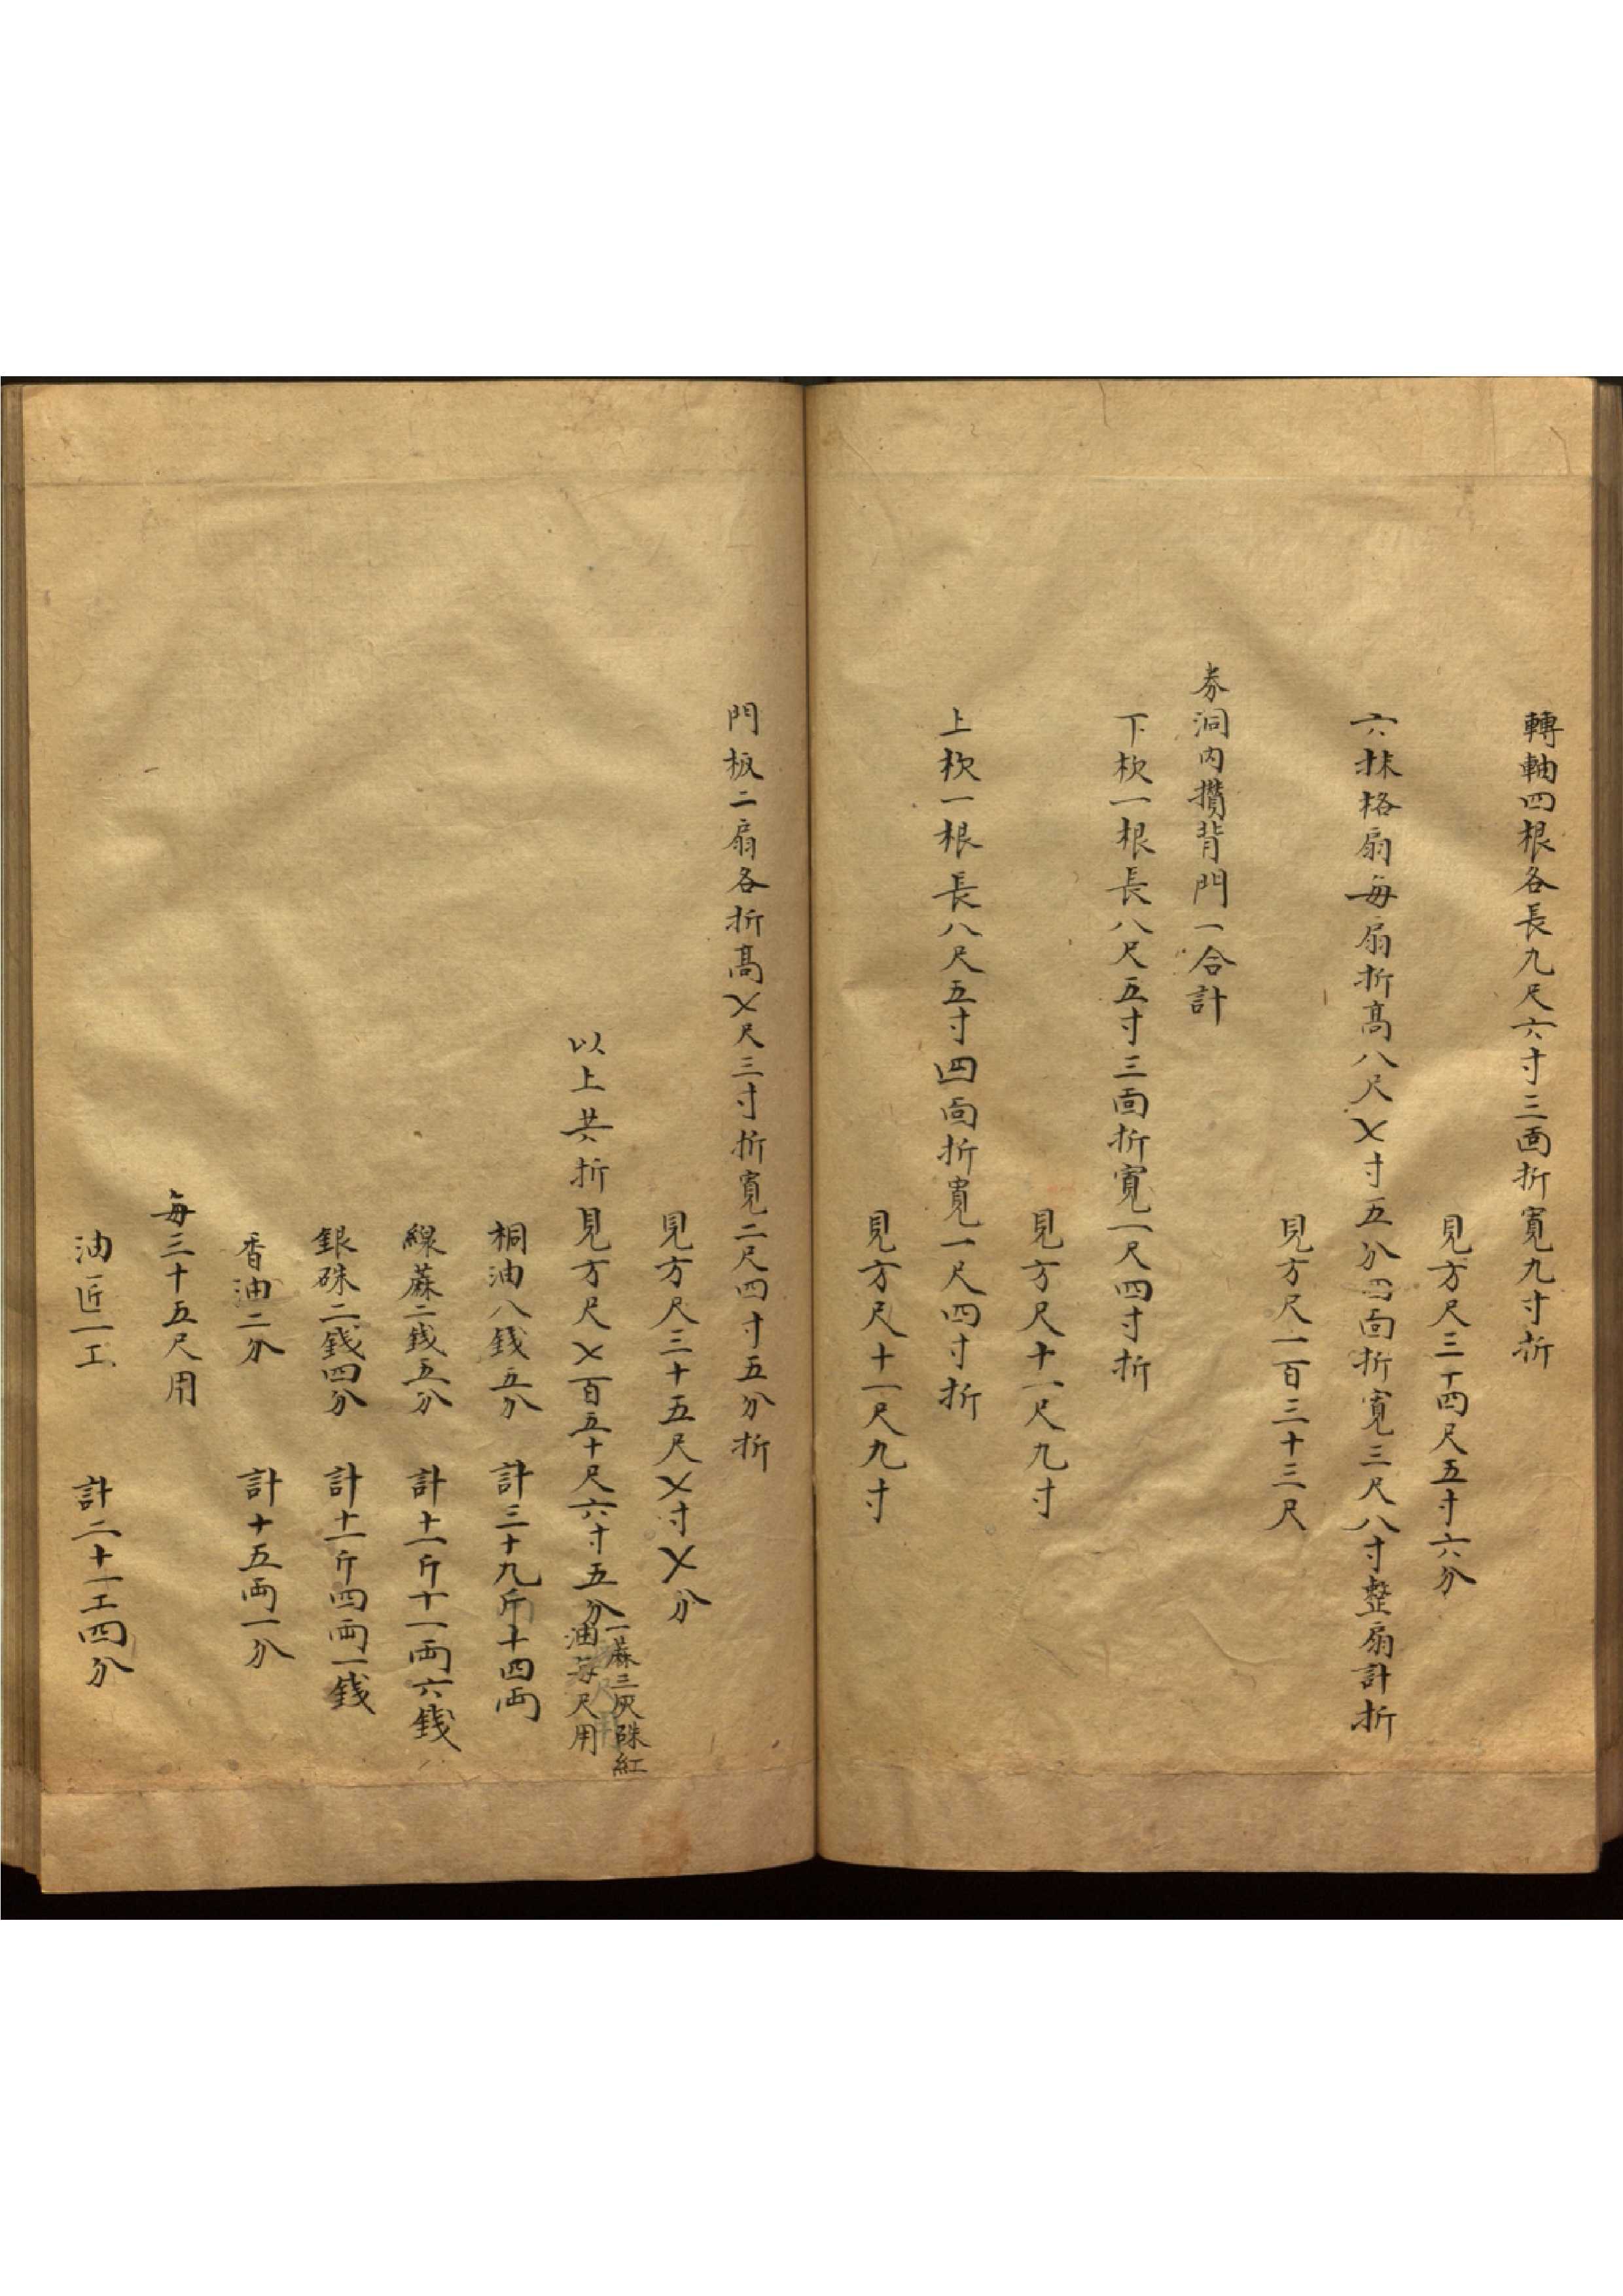 轉軸四根各長九尺六寸三面折寬九寸折
見方尺三十四尺五寸六分
六抹格扇每扇折高八尺〤寸五分四面折寬三尺八寸整扇計折
見方尺一百三十三尺
券洞内攢背門一合計
下枕一根長八尺五寸三面折寬一尺四寸折
見方尺十一尺九寸
上枕一根長八尺五寸四面折寬一尺四寸折
見方尺十一尺九寸
門板二扇各折髙〤尺三寸折寬二尺四寸五分折
見方尺三十五尺〤寸〤分
以上共折見方尺〤百五十尺六寸五分
一蔴三灰硃紅
油每尺用
桐油八錢五分 計三十九斤十四両
線蔴二錢五分 計十一斤十一両六錢
銀硃二錢四分 計十一斤四両一錢
香油二分 計十五両一分
每三十五尺用
油匠一工 計二十一工四分